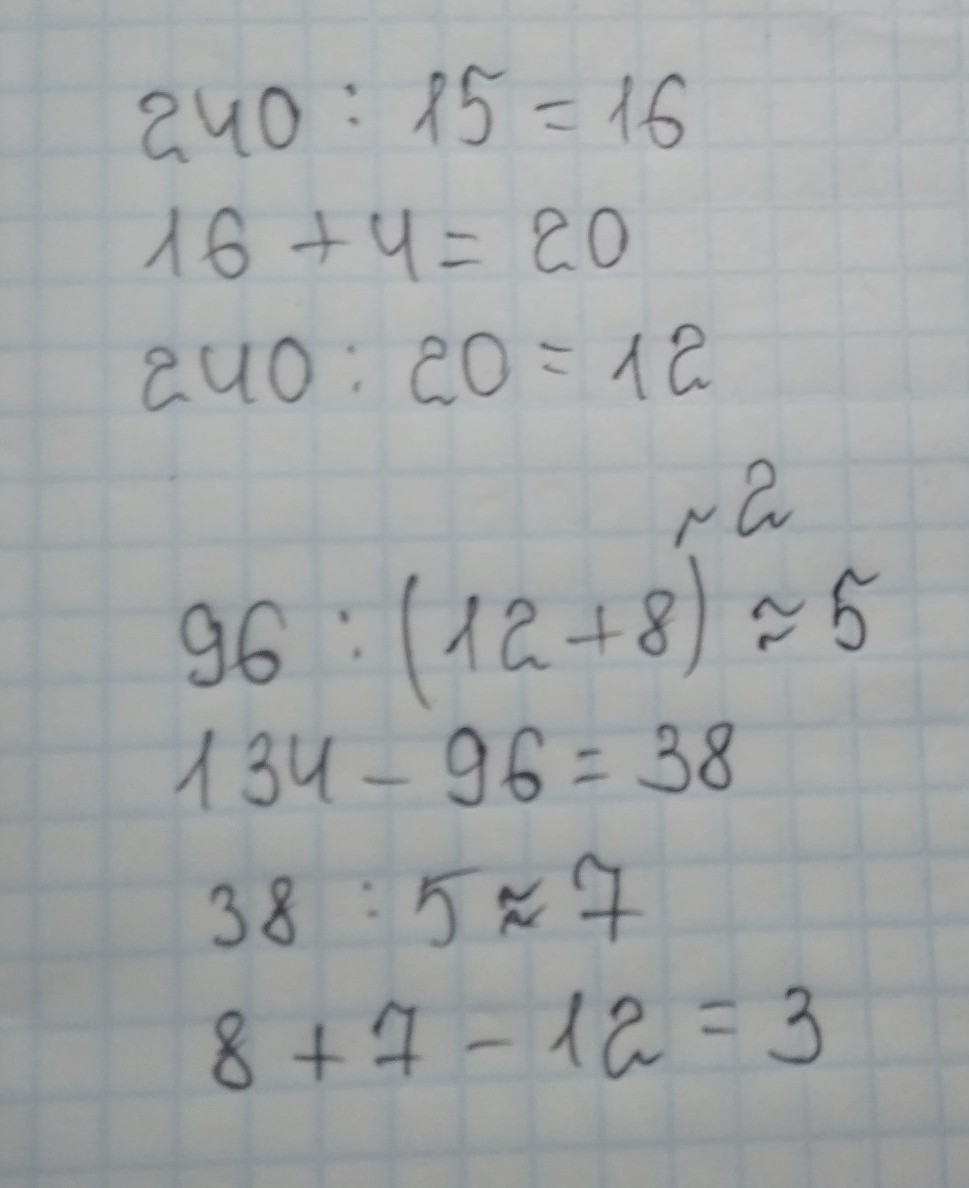 240 : 15 = 16
16 + 4 = 20
240 : 20 = 12
~ 2
96 : (12 + 8) ≈ 5
134 - 96 = 38
38 : 5 ≈ 7
8 + 7 - 12 = 3